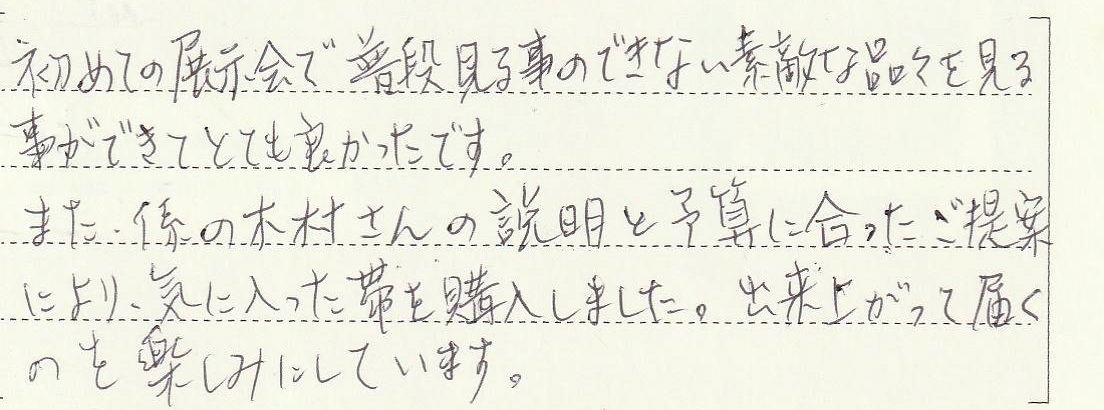 初めての展示会で普段見る事のできない素敵な品々を見る
事ができてとても良かったです。
また、係の木村さんの説明と予算に合ったご提案
により、気に入った帯を購入しました。出来上がって届く
のを楽しみにしています。